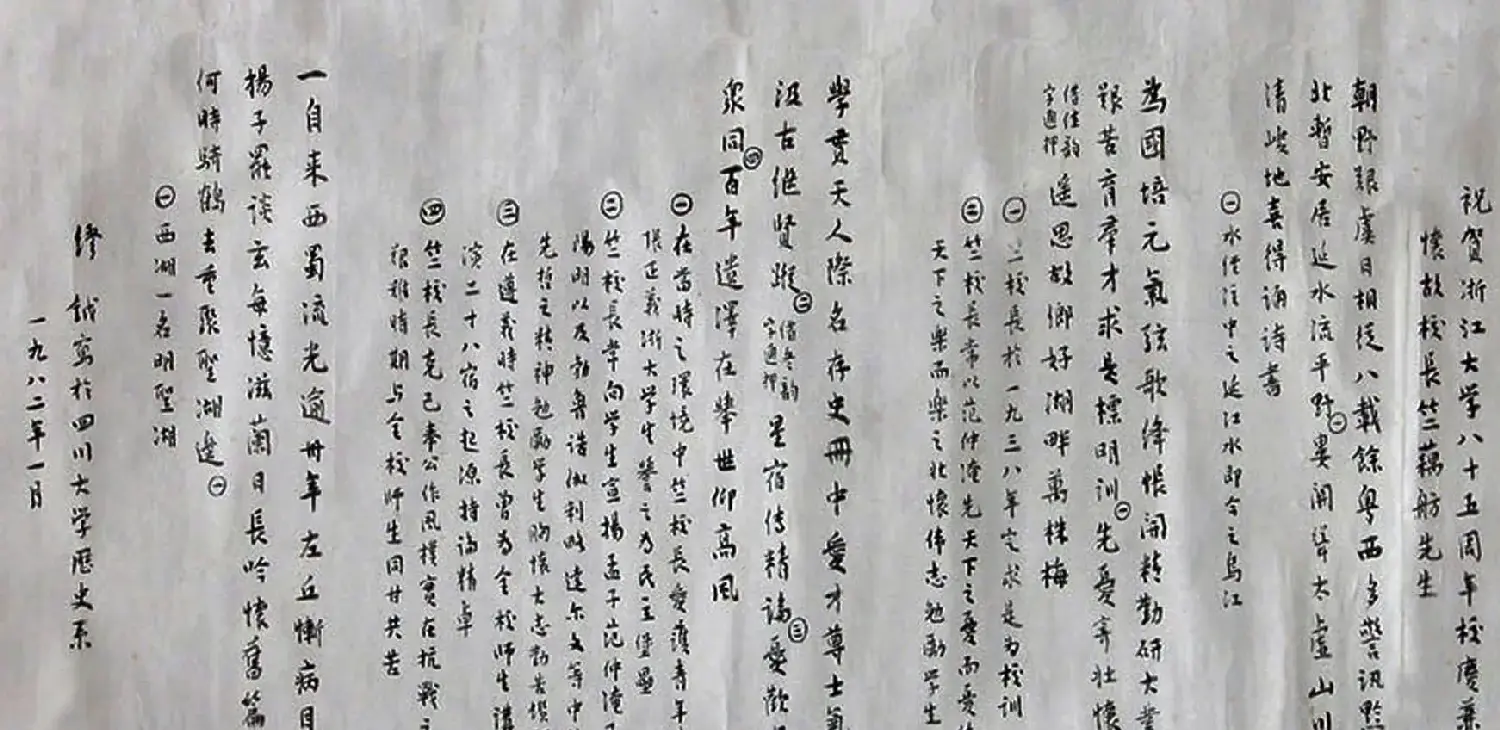 祝贺浙江大学八十五周年校慶兼
懷故校長竺藕舫先生
朝野艱虞日相從八載餘粤西多警訊黔
北暫安居延水流平野㊀婁關聳太虚山川
清峻地喜得誦诗書
㊀水经注中之延江水即今之烏江
為國培元氣弦歌绛帳開精勤研大業
艱苦育羣才求是標明训㊀先憂寄壮懷
借佳韵
字通押
遥思故鄉好湖畔萬株梅
㊀竺校長於一九三八年定求是为校训
㊁竺校長常以范仲淹先天下之憂而憂後
天下之樂而樂之壮懷伟志勉励学生
學貫天人際名存史冊中愛才尊士氣
汲古继賢蹤㊁
借冬韵
字通押
星宿傳精論㊂憂歡
眾同㊃百年遺澤在舉世仰高风
㊀在當時之環境中竺校長愛護青年
張正義浙大学生譽之为民主堡壘
㊁竺校長常向学生宣揚孟子范仲淹王
陽明以及勃鲁诺伽利略達尔文等中
先哲之精神勉励学生胸懷大志勤苦
㊂在遵義時竺校長曾为全校师生講
演二十八宿之起源持論精卓
㊃竺校長克己奉公作風樸實在抗戰之
艱難時期与全校师生同甘共苦
一自来西蜀流光逾卅年左丘慚病目
楊子罷談玄每憶滋蘭日長吟懷舊篇
何時騎鶴去重聚聖湖邊㊀
㊀西湖一名明聖湖
繆鉞寫於四川大学歷史系
一九八二年一月